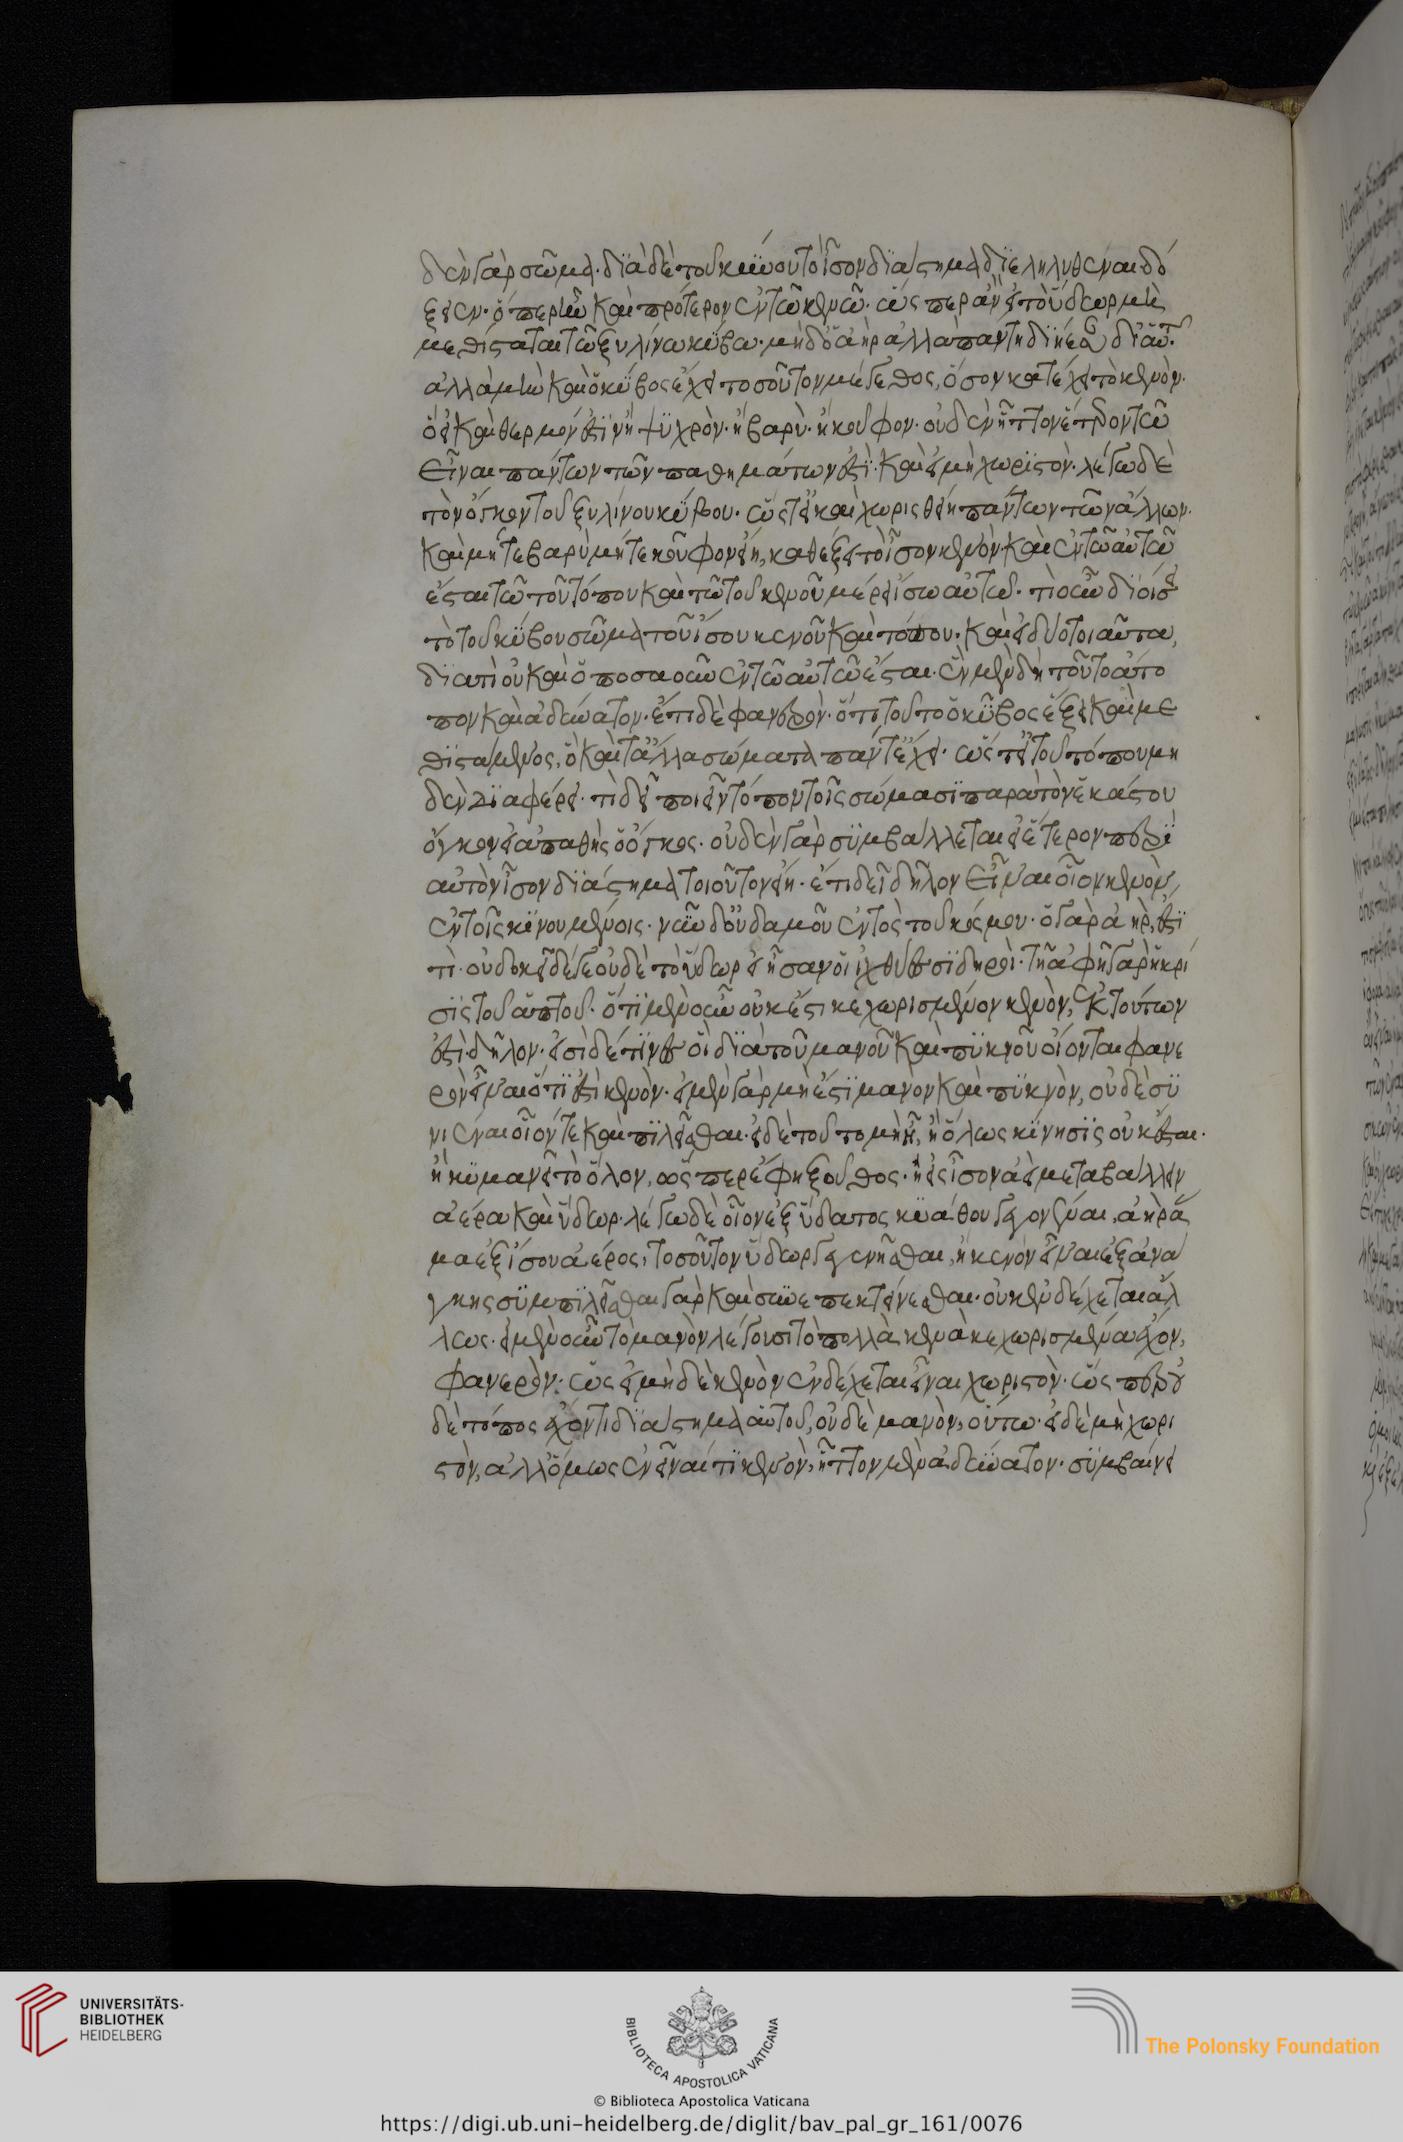 δὲν γὰρ σῶμα. δϊὰ δὲ τοῦ κύβου τὸ ἴσον δϊάστημα δϊεληλυθέναι δό
ξειεν. ὅπερ ἦν καὶ πρότερον ἐν τῶ κενῶ. ὥσπερ ἂν εἰ τὸ ὕδωρ μὴ
μεθίστατο τῶ ξυλίνω κύβω. μηδ' ὁ ἀὴρ ἀλλὰ πάντη δϊήεσαν δι' αὐτοῦ.
ἀλλὰ μὴν καὶ ὁ κύβος ἔχει τοσοῦτον μέγεθος, ὅσον κατέχει τὸ κενὸν.
ὃ εἰ καὶ θερμόν ἐστϊν ἢ ψϋχρὸν. ἢ βαρὺ. ἢ κοῦφον. οὐδὲν ἧττον ἕτερον τῶ
εἶναι πάντων τῶν παθημάτων ἐστὶ. καὶ εἰ μὴ χωρϊστὸν. λέγω δὲ
τὸν ὄγκον τοῦ ξυλίνου κύβου. ὥστ' εἰ καὶ χωρισθείη πάντων τῶν ἄλλων.
καὶ μήτε βαρὺ μήτε κοῦφον εἴη, καθέξει τὸ ἴσον κενὸν καὶ ἐν τῶ αὐτῶ
ἔσται τῶ τοῦ τόπου καὶ τῶ τοῦ κενοῦ μέρει ἴσω αὐτῶ. τί οὖν δϊοίσει
τὸ τοῦ κύβου σῶμα τοῦ ἴσου κενοῦ καὶ τόπου. καὶ εἰ δύο τοιαῦτα,
δϊατὶ οὐ καὶ ὁποσαοῦν ἐν τῶ αὐτῶ ἔσται. ἓν μὲν δὴ τοῦτο ἄτο
πον καὶ ἀδύνατον. ἔτι δὲ φανερὸν. ὅτι τοῦτο ὁ κύβος ἕξει καὶ με
θϊστάμενος, ὃ καὶ τἆλλα σώματα πάντ' ἔχει. ὥστ' εἰ τοῦ τόπου μη
δὲν δϊαφέρει. τί δεῖ ποιεῖν τόπον τοῖς σώμασϊ παρὰ τὸν ἑκάστου
ὄγκον εἰ ἀπαθὴς ὁ ὄγκος. οὐδὲν γὰρ σϋμβάλλεται εἰ ἕτερον περὶ
αὐτὸν ἴσον δϊάστημα τοιοῦτον εἴη. ἔτι δεῖ δῆλον εἶναι οἷον κενὸν
ἐν τοῖς κϊνουμένοις. νῦν δ' οὐδαμοῦ ἐντὸς τοῦ κόσμου. ὁ γὰρ ἀὴρ, ἐστί
τι. οὐ δοκεῖ δέ γε οὐδὲ τὸ ὕδωρ εἰ ἦσαν οἱ ἰχθύες σϊδηροὶ. τῆ ἀφῆ γὰρ ἡ κρί
σϊς τοῦ ἁπτοῦ. ὅτι μὲν οὖν οὐκ ἔστι κεχωρισμένον κενὸν, ἐκ τούτων
ἐστὶ δῆλον. εἰσὶ δέ τϊνες οἳ δϊὰ τοῦ μανοῦ καὶ πϋκνοῦ οἴονται φανε
ρὸν εἶναι ὅτι ἐστὶ κενὸν. εἰ μὲν γὰρ μὴ ἔστϊ μανὸν καὶ πϋκνὸν, οὐδὲ σϋ
νιέναι οἷόν τε καὶ πϊλεῖσθαι. εἰ δὲ τοῦτο μὴ ῇ, ἢ ὅλως κίνησϊς οὐκ ἔσται.
ἢ κϋμανεῖ τὸ ὅλον, ὥσπερ ἔφη ξοῦθος. ἢ εἰς ἴσον ἀεὶ μεταβάλλειν
ἀέρα καὶ ὕδωρ. λέγω δὲ οἷον εἰ ἐξ ὕδατος κϋάθου γέγονεν, ἀὴρ ἅ
μα ἐξ ἴσου ἀέρος, τοσοῦτον ὕδωρ γεγενῆσθαι, ἢ κενὸν εἶναι ἐξ ἀνά
γκης σϋμπϊλεῖσθαι γὰρ καὶ σϋνεπεκτείνεσθαι. οὐκ ἐνδέχεται ἄλ
λως. εἰ μὲν οὖν τὸ μανὸν λέγουσι τὸ πολλὰ κενὰ κεχωρισμένα ἔχον,
φανερὸν. ὡς εἰ μὴ δὲ κενὸν ἐνδέχεται εἶναι χωριστὸν. ὥσπερ οὐ
δὲ τόπος ἔχοντι δϊάστημα αὐτοῦ, οὐδὲ μανὸν, οὕτω. εἰ δὲ μὴ χωρι
στὸν, ἀλλ' ὅμως ἐνεῖναί τϊ κενὸν, ἧττον μὲν ἀδύνατον. σϋμβαίνει
UNIVERSITÄTS-
BIBLIOTHEK
HEIDELBERG
BIBLIOTECA APOSTOLICA VATICANA
© Biblioteca Apostolica Vaticana
The Polonsky Foundation
https://digi.ub.uni-heidelberg.de/diglit/bav_pal_gr_161/0076